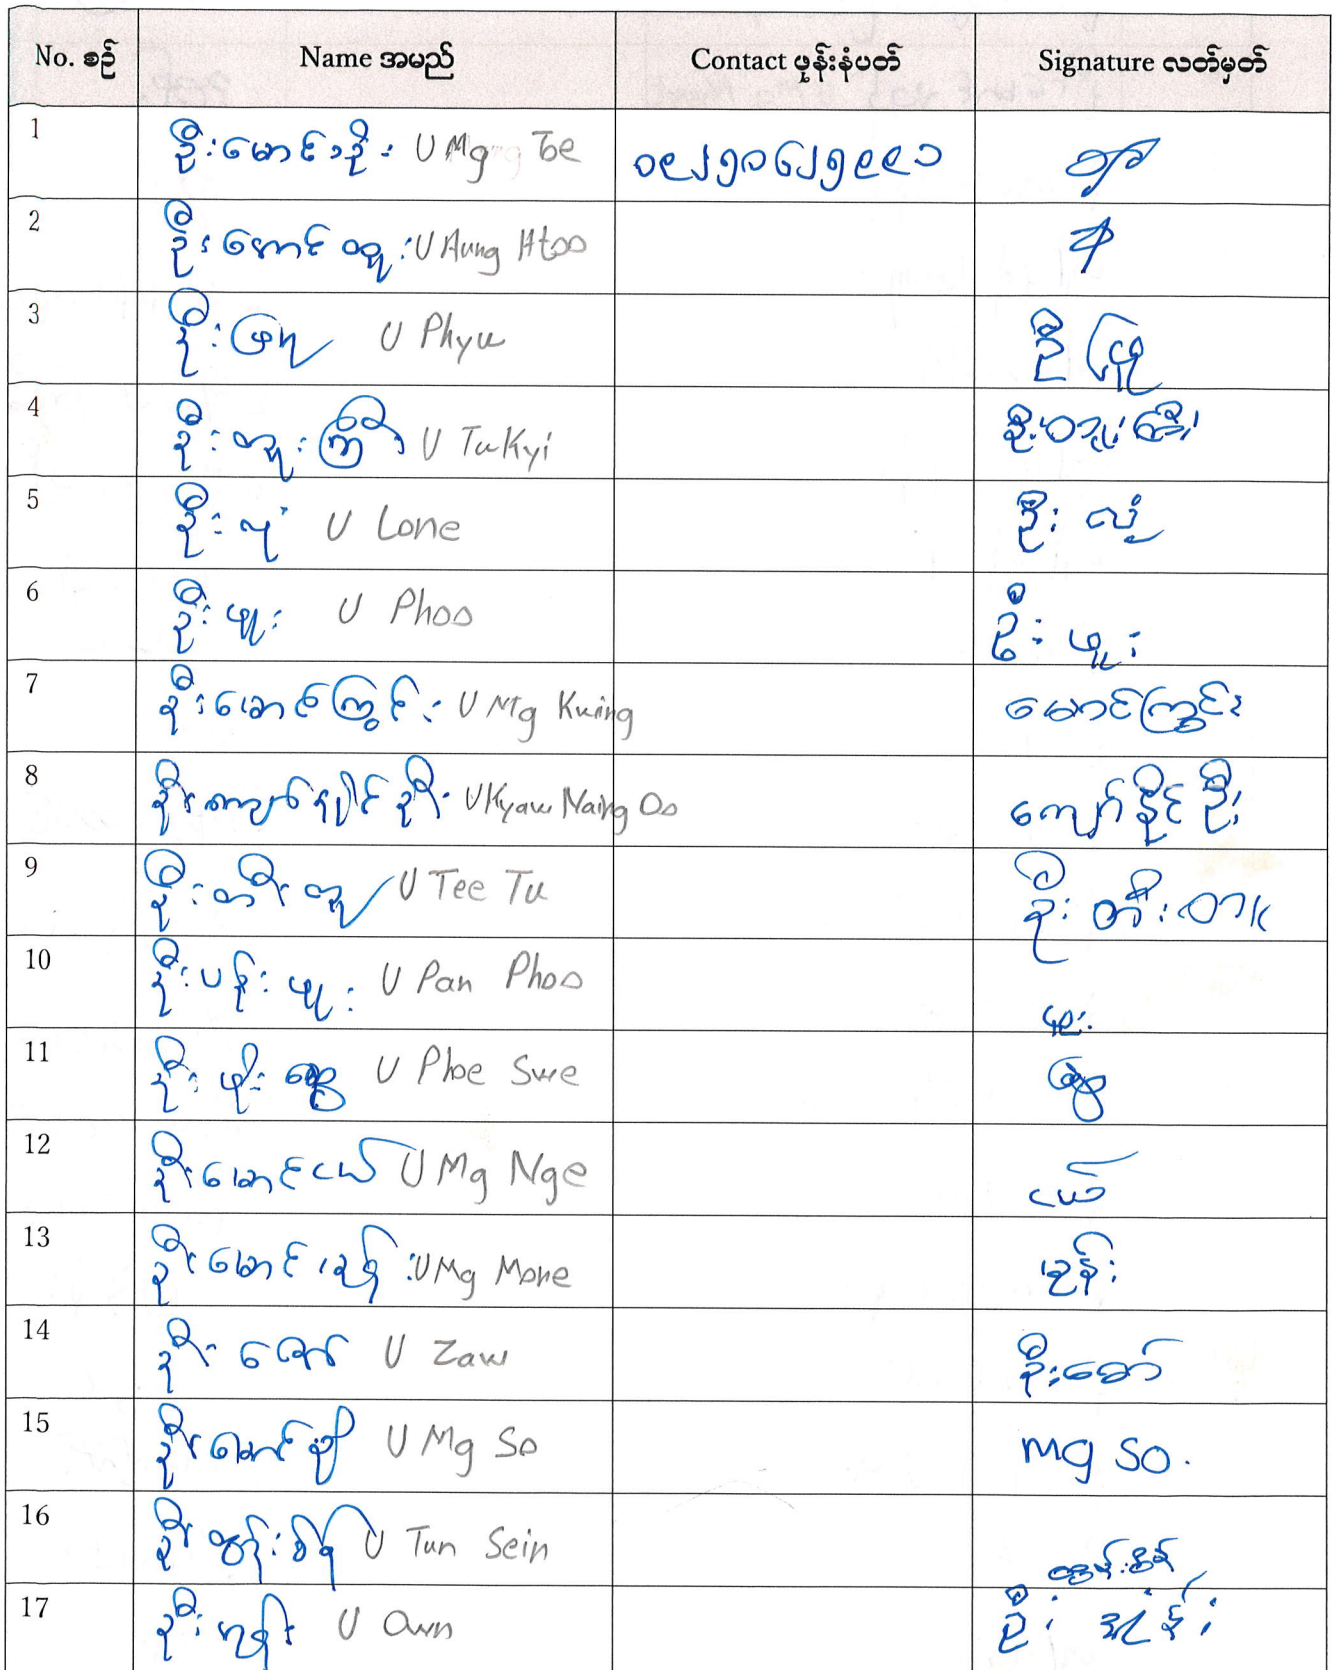 No. စဉ် Name အမည် Contact ဖုန်းနံပတ် Signature လတ်မှတ်
1 ဦးမောင်အိုး U Mg Toe ၀၉၂၅၀၆၂၅၉၉၁
2 ဦးအောင်ထူး U Aung Htoo
3 ဦးဖြူ U Phyu ဦးဖြူ
4 ဦးတူးကြီး U Tu Kyi ဦးတူးကြီး
5 ဦးလုံး U Lone ဦးလုံး
6 ဦးဖူး U Phoo ဦးဖူး
7 ဦးမောင်ကြွင်း U Mg Kwing မောင်ကြွင်း
8 ဦးကျော်နိုင်ဦး U Kyaw Naing Oo ကျော်နိုင်ဦး
9 ဦးတီးတူ U Tee Tu ဦးတီးတူ
10 ဦးပန်းဖူး U Pan Phoo ဖူး
11 ဦးဖိုးဆွေ U Phoe Swe ဆွေ
12 ဦးမောင်ငယ် U Mg Nge ငယ်
13 ဦးမောင်မုန်း U Mg Mone မုန်း
14 ဦးဇော် U Zaw ဦးဇော်
15 ဦးမောင်စိုး U Mg So Mg So.
16 ဦးထွန်းစိန် U Tun Sein ထွန်းစိန်
17 ဦးအုန်း U Own ဦးအုန်း